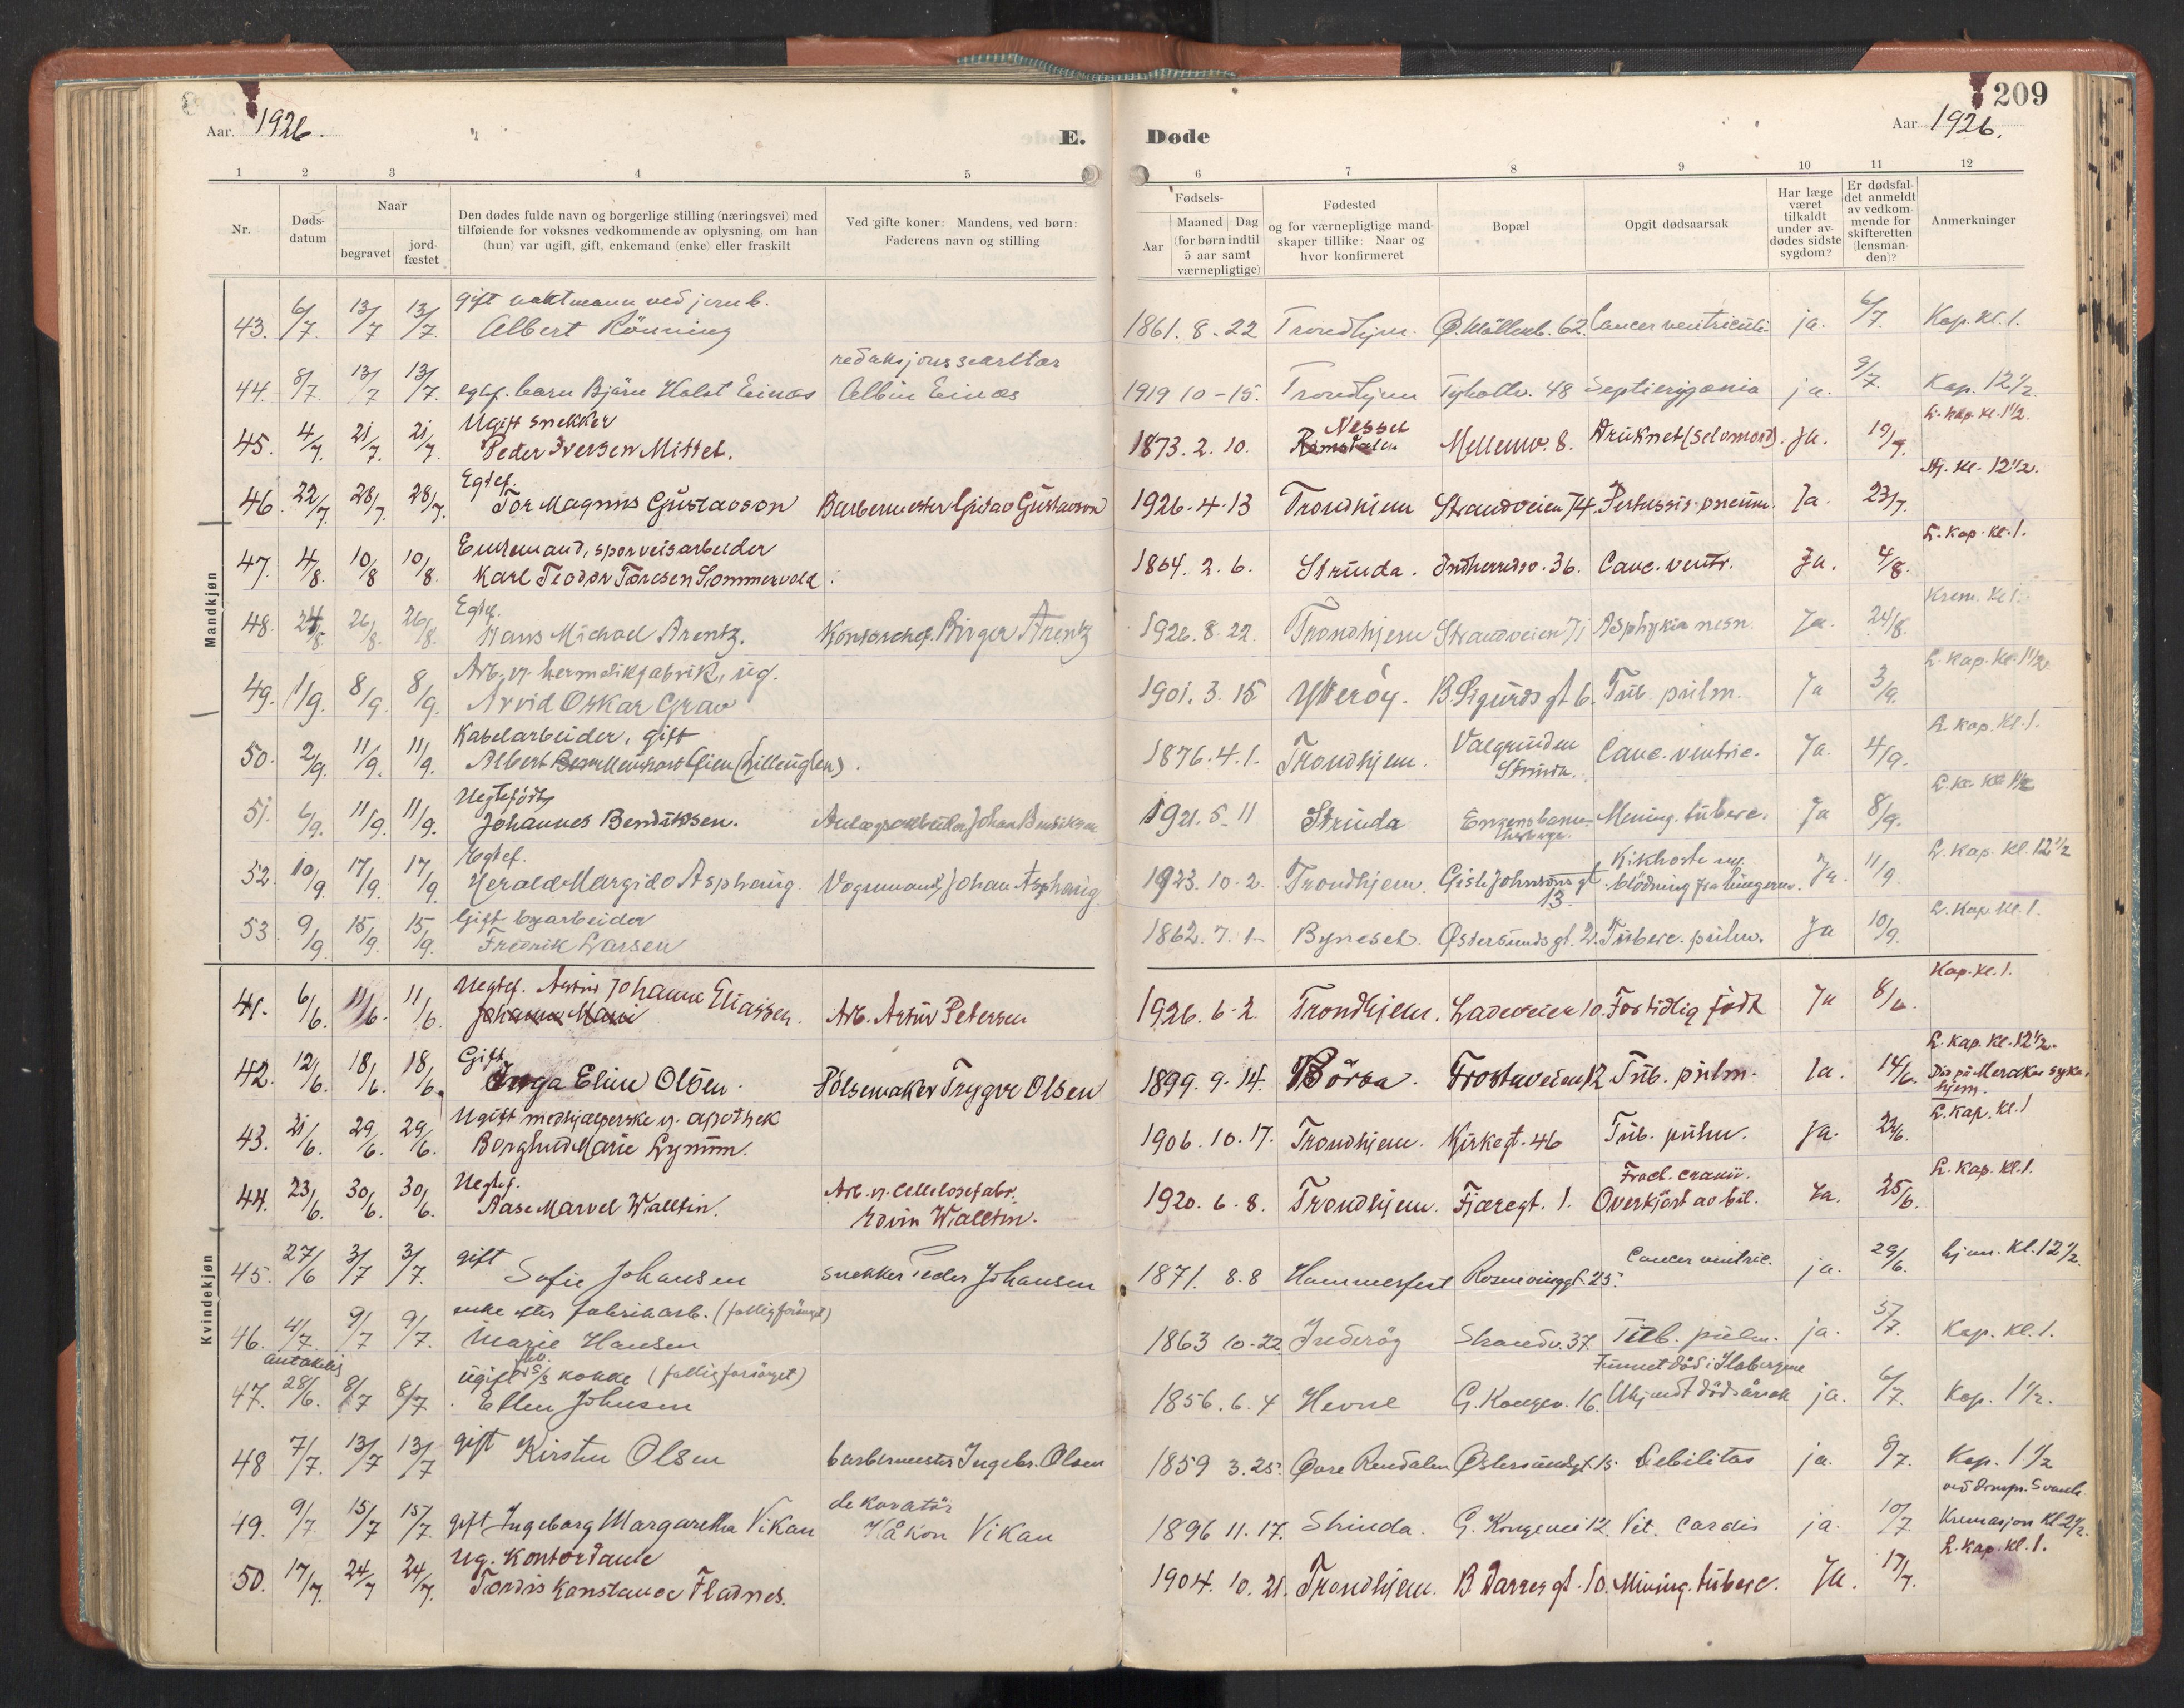 209
Aar 1926.
E. Døde
Aar 1926.
1 2 3 4 5 6 7 8 9 10 11 12
Nr.
Døds-
datum
Naar
begravet
jord-
fæstet
Den dødes fulde navn og borgerlige stilling (næringsvei) med
tilføiende for voksnes vedkommende av oplysning, om han
(hun) var ugift, gift, enkemand (enke) eller fraskilt
Ved gifte koner: Mandens, ved børn:
Faderens navn og stilling
Fødsels-
Aar
Maaned Dag
(for børn indtil
5 aar samt
værnepligtige)
Fødested
og for værnepligtige mand-
skaper tillike: Naar og
hvor konfirmeret
Bopæl
Opgit dødsaarsak
Har læge
været
tilkaldt
under av-
dødes sidste
sygdom?
Er dødsfal-
det anmeldt
av vedkom-
mende for
skifteretten
(lensman-
den)?
Anmerkninger
Mandkjøn
gift vaktmann ved jernb.
43. 6/7 13/7 13/7. Albert Rönning 1861. 8. 22 Trondhjem. Ø. Møllenb. 62. Cancer ventriculi ja. 6/7. Kap. kl. 1.
44. 8/7. 13/7 13/7. egtef. barn Bjärn Holst Einas Albin Einas 1919 10-15. Trondhjem Tyholtv. 48 ja. 9/7. Kap. 12 1/2.
Ugift snekker Nesset L. kap. kl. 1 1/2.
45. 4/7. 21/7. 21/7. Peder Iversen Mittet. 1873. 2. 10. Romsdalen Mellemv. 8. Druknet (selvmord). Ja. 19/7.
Egtef. kl. 12 1/2.
46. 22/7. 28/7. 28/7. Tor Magnus Gustavson Barbermester Gustav Gustavson 1926. 4. 13 Trondhjem Strandveien 74. Pertussis. pneum. Ja. 23/7.
Enkemand, sporveisarbeider L. kap. kl. 1.
47. 4/8. 10/8 10/8. Karl Teodor Toresen Sommervold. 1864. 2. 6. Strinda. Indherredsv. 36. Canc. ventr. Ja. 4/8.
Egtef. Krem. kl. 1.
48. 24/8 26/8. 26/8. Hans Michael Arentz. Kontorchef Birger Arentz 1926. 8. 22. Trondhjem Strandveien 71 Asphyxia neon. Ja. 24/8.
Arb. v. hermetikfabrik, ug. L. kap. kl. 1 1/2.
49. 1/9. 8/9. 8/9. Arvid Oskar Grav 1901. 3. 15 Ytterøy. B. Sigurds gt 6. Tub. pulm. Ja 3/9.
Kabelarbeider, gift L. kap. kl. 1.
50. 2/9. 11/9. 11/9. Albert 1876. 4. 1. Trondhjem. Valgrinden Strinda. Canc. ventric. Ja. 4/9.
Uegtefödt
51. 6/9. 11/9. 11/9. Johannes Bendiksen. Anlægsarbeider Johan Bendiksen 1921. 5. 11 Strinda Mening. tuberc. Ja 8/9.
Egtef. Kikhoste og L. kap. kl. 12 1/2
52. 10/9. 17/9 17/9. Herald Margido Asphaug. Vognmand Johan Asphaug 1923. 10. 2. Trondhjem. Gisle Johnsons gt. 13. blödning fra lungerne. Ja. 11/9.
Gift byarbeider L. kap. kl. 1.
53. 9/9 15/9. 15/9. Fredrik Larsen 1862. 7. 1. Byneset. Østersunds gt. 2. Tuberc. pulm. Ja 10/9.
Kvindekjøn
Uegtef. Astrid Johanne Eliassen. Kap. kl. 1.
41. 6/6. 11/6. 11/6. Johanne Marie Arb. Artur Petersen 1926. 6. 2. Trondhjem. Ladeveien 10. For tidlig födt Ja 8/6.
Gift L. kap. kl. 12 1/2.
42. 12/6. 18/6. 18/6. Inga Eline Olsen. Pölsemaker Trygve Olsen 1899. 9. 14. Börsa. Frostaveien 12 Tub. pulm. Ja. 14/6. Död på Meraker syke-
hjem.
Ugift medhjælperske v. apothek L. kap. kl. 1
43. 21/6. 29/6. 29/6. Borghild Marie Lynum. 1906. 10. 17. Trondhjem. Kirkegt. 46 Tub. pulm. Ja. 22/6.
Uegtef. Arb. v. Cellulosefabr. Fract. cranii. L. kap. kl. 1.
44. 23/6. 30/6. 30/6. Aase Marvel Walltin. Edvin Walltin. 1920. 6. 8. Trondhjem. Fjæregt. 1. Overkjört av bil. Ja. 25/6.
45. 27/6 3/7 3/7. gift Sofie Johansen snekker Peder Johansen 1871. 8. 8 Hammerfest Rosenvinggt. 25. Cancer ventric. ja. 29/6. hjem. kl. 12 1/2.
enke efter fabrikarb. (fattigforsörget)
46. 4/7. 9/7 9/7. Marie Hansen 1863 10-22 Inderöy Strandv. 37 Tub. pulm. ja. 5/7. Kap. kl. 1.
antakelig
ugift kokke (fattigforsörget) Funnet död i Ilabergene
47. 28/6. 8/7 8/7. Ellen Johnsen 1856. 6. 4 Hevne G. Kongev. 16. Ukjendt dödsårsak ja. 6/7. Kap. 1 1/2.
48 7/7. 13/7 13/7 gift Kirsten Olsen barbermester Ingebr. Olsen 1859 3. 25. Øvre Rendalen Østersundsgt. 15. Debilitas ja. 9/7. Kap. 1 1/2
dekoratör
49. 9/7 15/7 15/7. gift Ingeborg Margaretha Vikan Håkon Vikan 1896 11. 17. Strinda. G. Kongevei 12. Vit. cordis ja. 10/7. Kremasjon kl. 2 1/2.
Ug. Kontordame L. kap. kl. 1.
50. 17/7. 24/7 24/7. Tordis Konstance Fladnes. 1904. 10. 21. Trondhjem. B. Darres gt. 10. Mening. tuberc. Ja. 17/7.